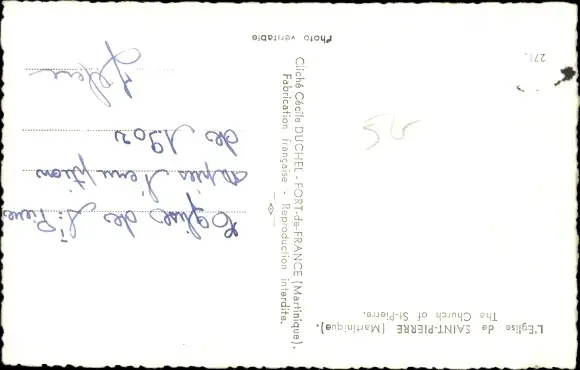 L'Eglise de SAINT-PIERRE (Martinique).
The Church of St-Pierre.
271.
Cliché Cécile DUCHEL - FORT-de-FRANCE (Martinique).
Fabrication française - Reproduction interdite.
Photo véritable
Eglise de St Pierre
après l'éruption
de 1902